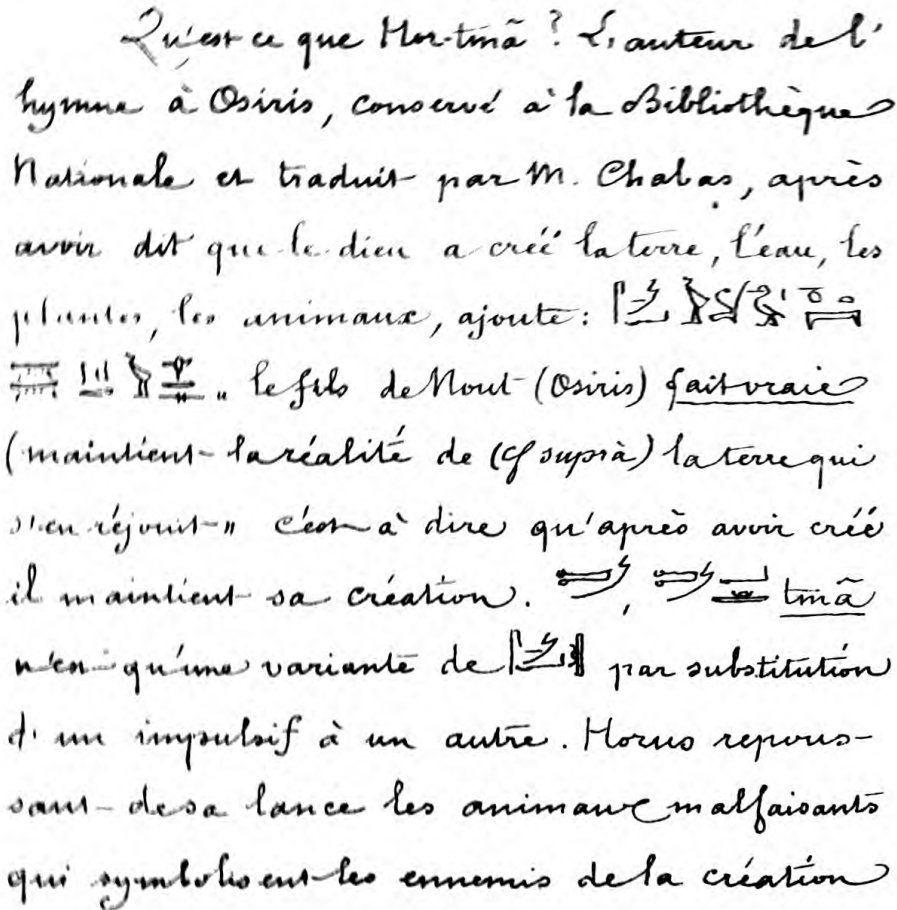 Qu'est ce que Hor-tmã ? L'auteur de l'
hymne à Osiris, conservé à la Bibliothèque
Nationale et traduit par M. Chabas, après
avoir dit que le dieu a créé la terre, l'eau, les
plantes, les animaux, ajoute :
„ le fils de Nout (Osiris) fait vraie
(maintient la réalité de (cf suprà) la terre qui
s'en réjouit „ c'est à dire qu'après avoir créé
il maintient sa création. , tmã
n'en qu'une variante de par substitution
d'un impulsif à un autre. Horus repous-
sant de sa lance les animaux malfaisants
qui symbolisent les ennemis de la création